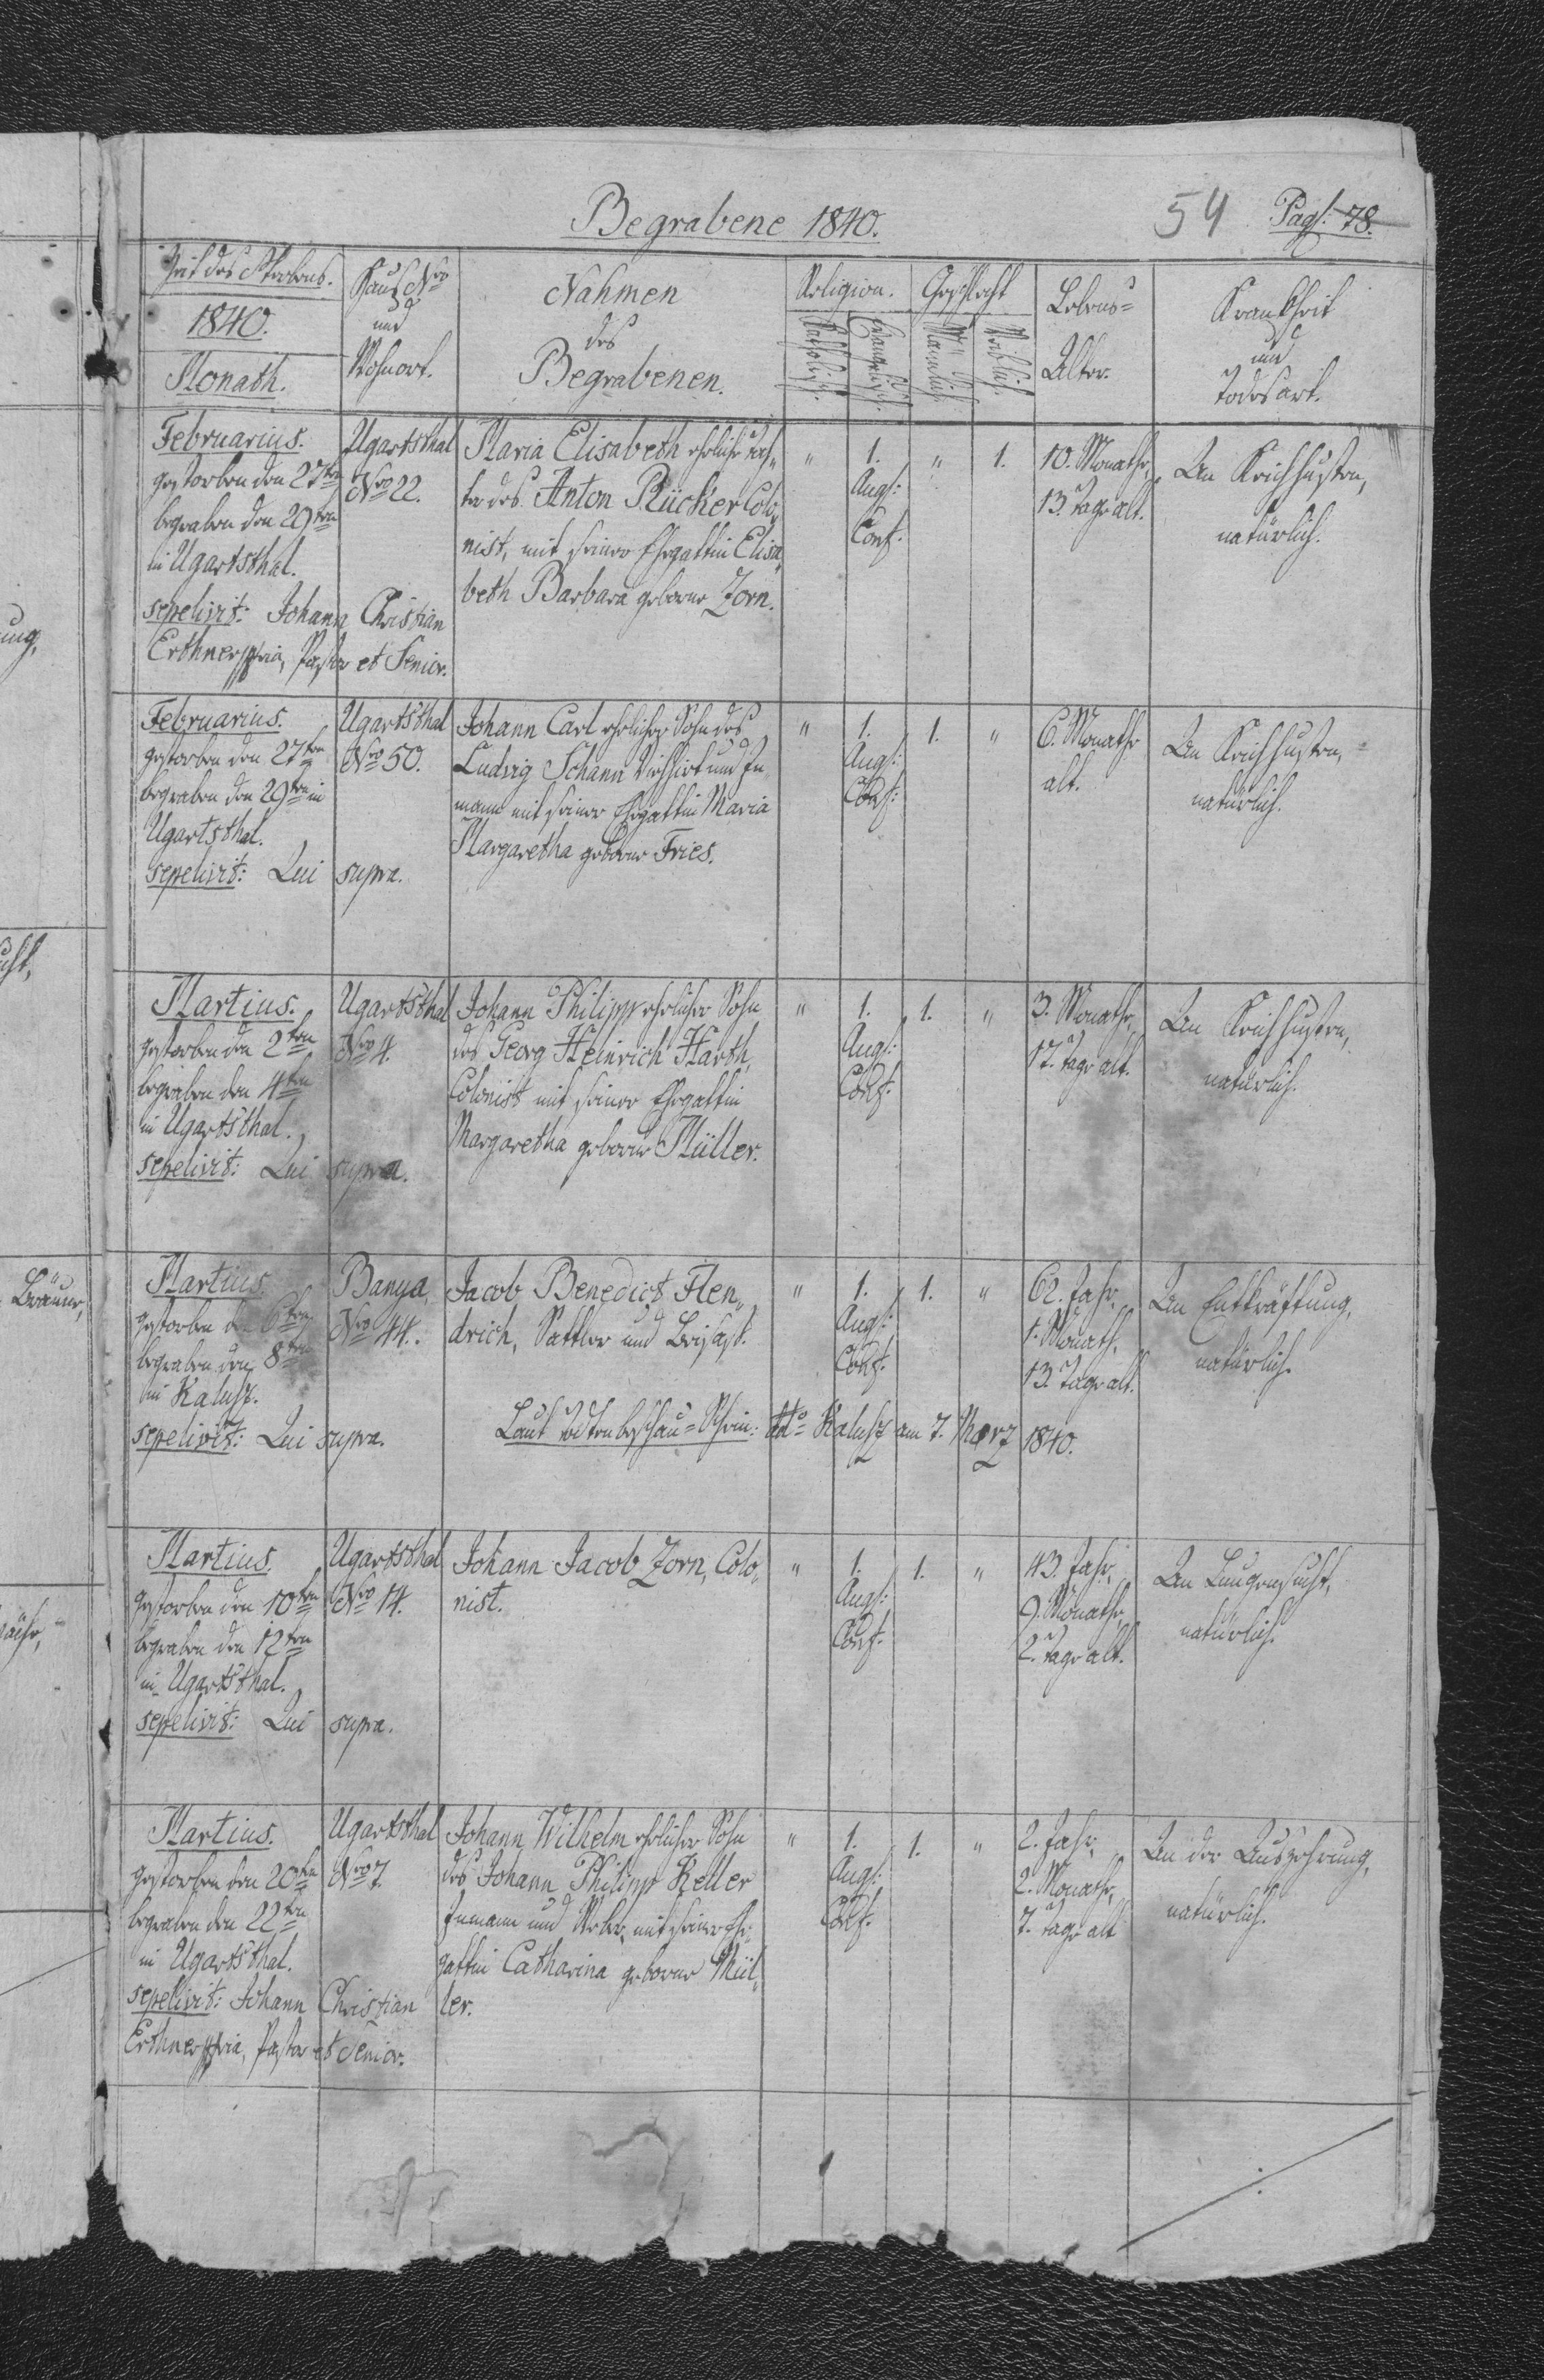 Begrabene 1840.
54 Pag: 78.
Zeit des Sterbens.
1840.
Monath.
Haus Nro
und
Wohnort.
Nahmen
des
Begrabenen.
Religion.
Katholisch.
Evangelisch.
Geschlecht
Männlich.
Weiblich.
Lebens=
Alter.
Krankheit
und
Todesart.
Februarius.
gestorben den 27ten
begraben den 29ten
in Ugartsthal.
sepelivit: Johann Christian
Erthner ppria, Pastor et Senior.
Ugartsthal
Nro 22.
Maria Elisabeth eheliche Toch„
ter des Anton Rücker Colo„
nist, mit seiner Ehegattin Elisa„
beth Barbara geborne Zorn.
" 1. " 1.
Augs:
Conf.
10. Monathe,
13. Tage alt.
An Keichhusten,
natürlich.
Februarius.
gestorben den 27ten
begraben den 29ten in
Ugartsthal.
sepelivit: Qui supra.
Ugartsthal
Nro 50.
Johann Carl ehelicher Sohn des
Ludvig Schann Viehhirt und In„
mann mit seiner Ehegattin Maria
Margaretha geborne Fries.
" 1. 1. "
Augs:
Conf:
6. Monathe
alt.
An Keichhusten,
natürlich.
Martius.
gestorben den 2ten
begraben den 4ten
in Ugartsthal.
sepelivit: Qui supra.
Ugartsthal
Nro 4.
Johann Philipp ehelicher Sohn
des Georg Heinrich Harth,
Colonist mit seiner Ehegattin
Margaretha geborne Müller.
" 1. 1. "
Augs:
Conf.
3. Monathe,
17. Tage alt.
An Keichhusten,
natürlich.
Martius.
gestorben den 6ten
begraben den 8ten
in Kalusz.
sepelivit: Qui supra.
Banya,
Nro 44.
Jacob Benedict Hen„
drich, Sattler und Beisaß.
Laut Todtenbeschau=Schein: ddo Kalusz am 7. Maerz 1840.
" 1. 1. "
Augs:
Conf.
62. Jahr,
1. Monath,
13. Tage alt.
An Entkräftung,
natürlich.
Martius.
gestorben den 10ten
begraben den 12ten
in Ugartsthal.
sepelivit: Qui supra.
Ugartsthal
Nro 14.
Johann Jacob Zorn, Colo„
nist.
" 1. 1. "
Augs:
Conf.
43. Jahr,
9. Monathe,
2. Tage alt.
An Lungensucht,
natürlich.
Martius.
gestorben den 20ten
begraben den 22ten
in Ugartsthal.
sepelivit: Johann Christian
Erthner ppria, Pastor et Senior.
Ugartsthal
Nro 7.
Johann Wilhelm ehelicher Sohn
des Johann Philipp Keller
Inmann und Weber, mit seiner Ehe„
gattin Catharina geborne Mül„
ler.
" 1. 1. "
Augs:
Conf.
2. Jahr,
2. Monathe,
7. Tage alt
An der Auszehrung,
natürlich.